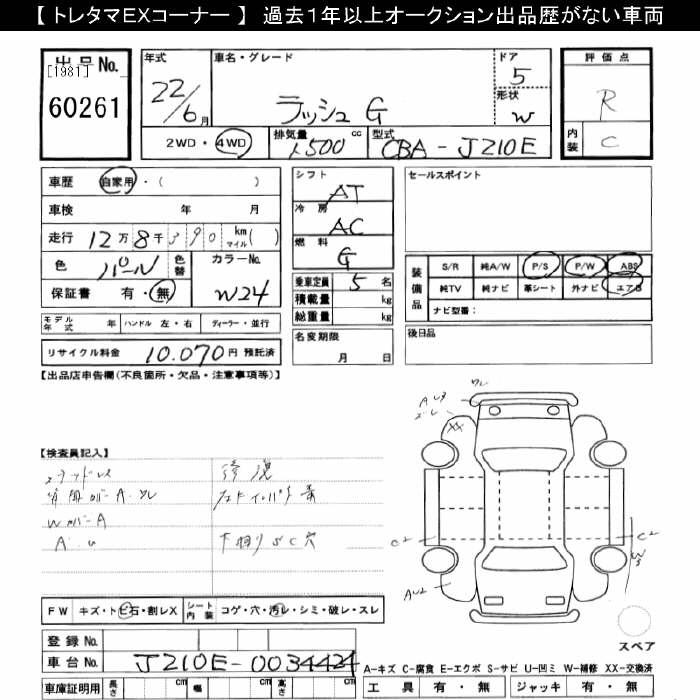 【 トレタマEXコーナー 】 過去1年以上オークション出品歴がない車両
出品No.
[1981]
60261
年式
22/6月
車名・グレード
ラッシュ G
ドア
5
形状
W
2WD・4WD
排気量
1500 cc
型式
CBA-J210E
評価点
R
内装
C
車歴 自家用・( )
車検 年 月
走行 12万8千390 km マイル( )
色 パール
色替
カラーNo.
W24
保証書 有・無
モデル年式 年 ハンドル 左・右 ディーラー・並行
リサイクル料金 10,070円 預託済
シフト
AT
冷房
AC
燃料
G
乗車定員 5 名
積載量 kg
総重量 kg
名変期限
月 日
セールスポイント
装備品
S/R 純A/W P/S P/W ABS
純TV 純ナビ 革シート 外ナビ エアB
ナビ型番:
後日品
【出品店申告欄(不良箇所・欠品・注意事項等)】
【検査員記入】
修復
WカバーA
下廻りSC穴
XX
C2
C2
AU2
FW キズ・トビ石・割レX
シート内装 コゲ・穴・汚レ・シミ・破レ・スレ
登録No.
車台No. J210E-0034424
車庫証明用 長さ cm 幅 cm 高さ cm
スペア
A-キズ C-腐食 E-エクボ S-サビ U-凹ミ W-補修 XX-交換済
工具 有・無 ジャッキ 有・無